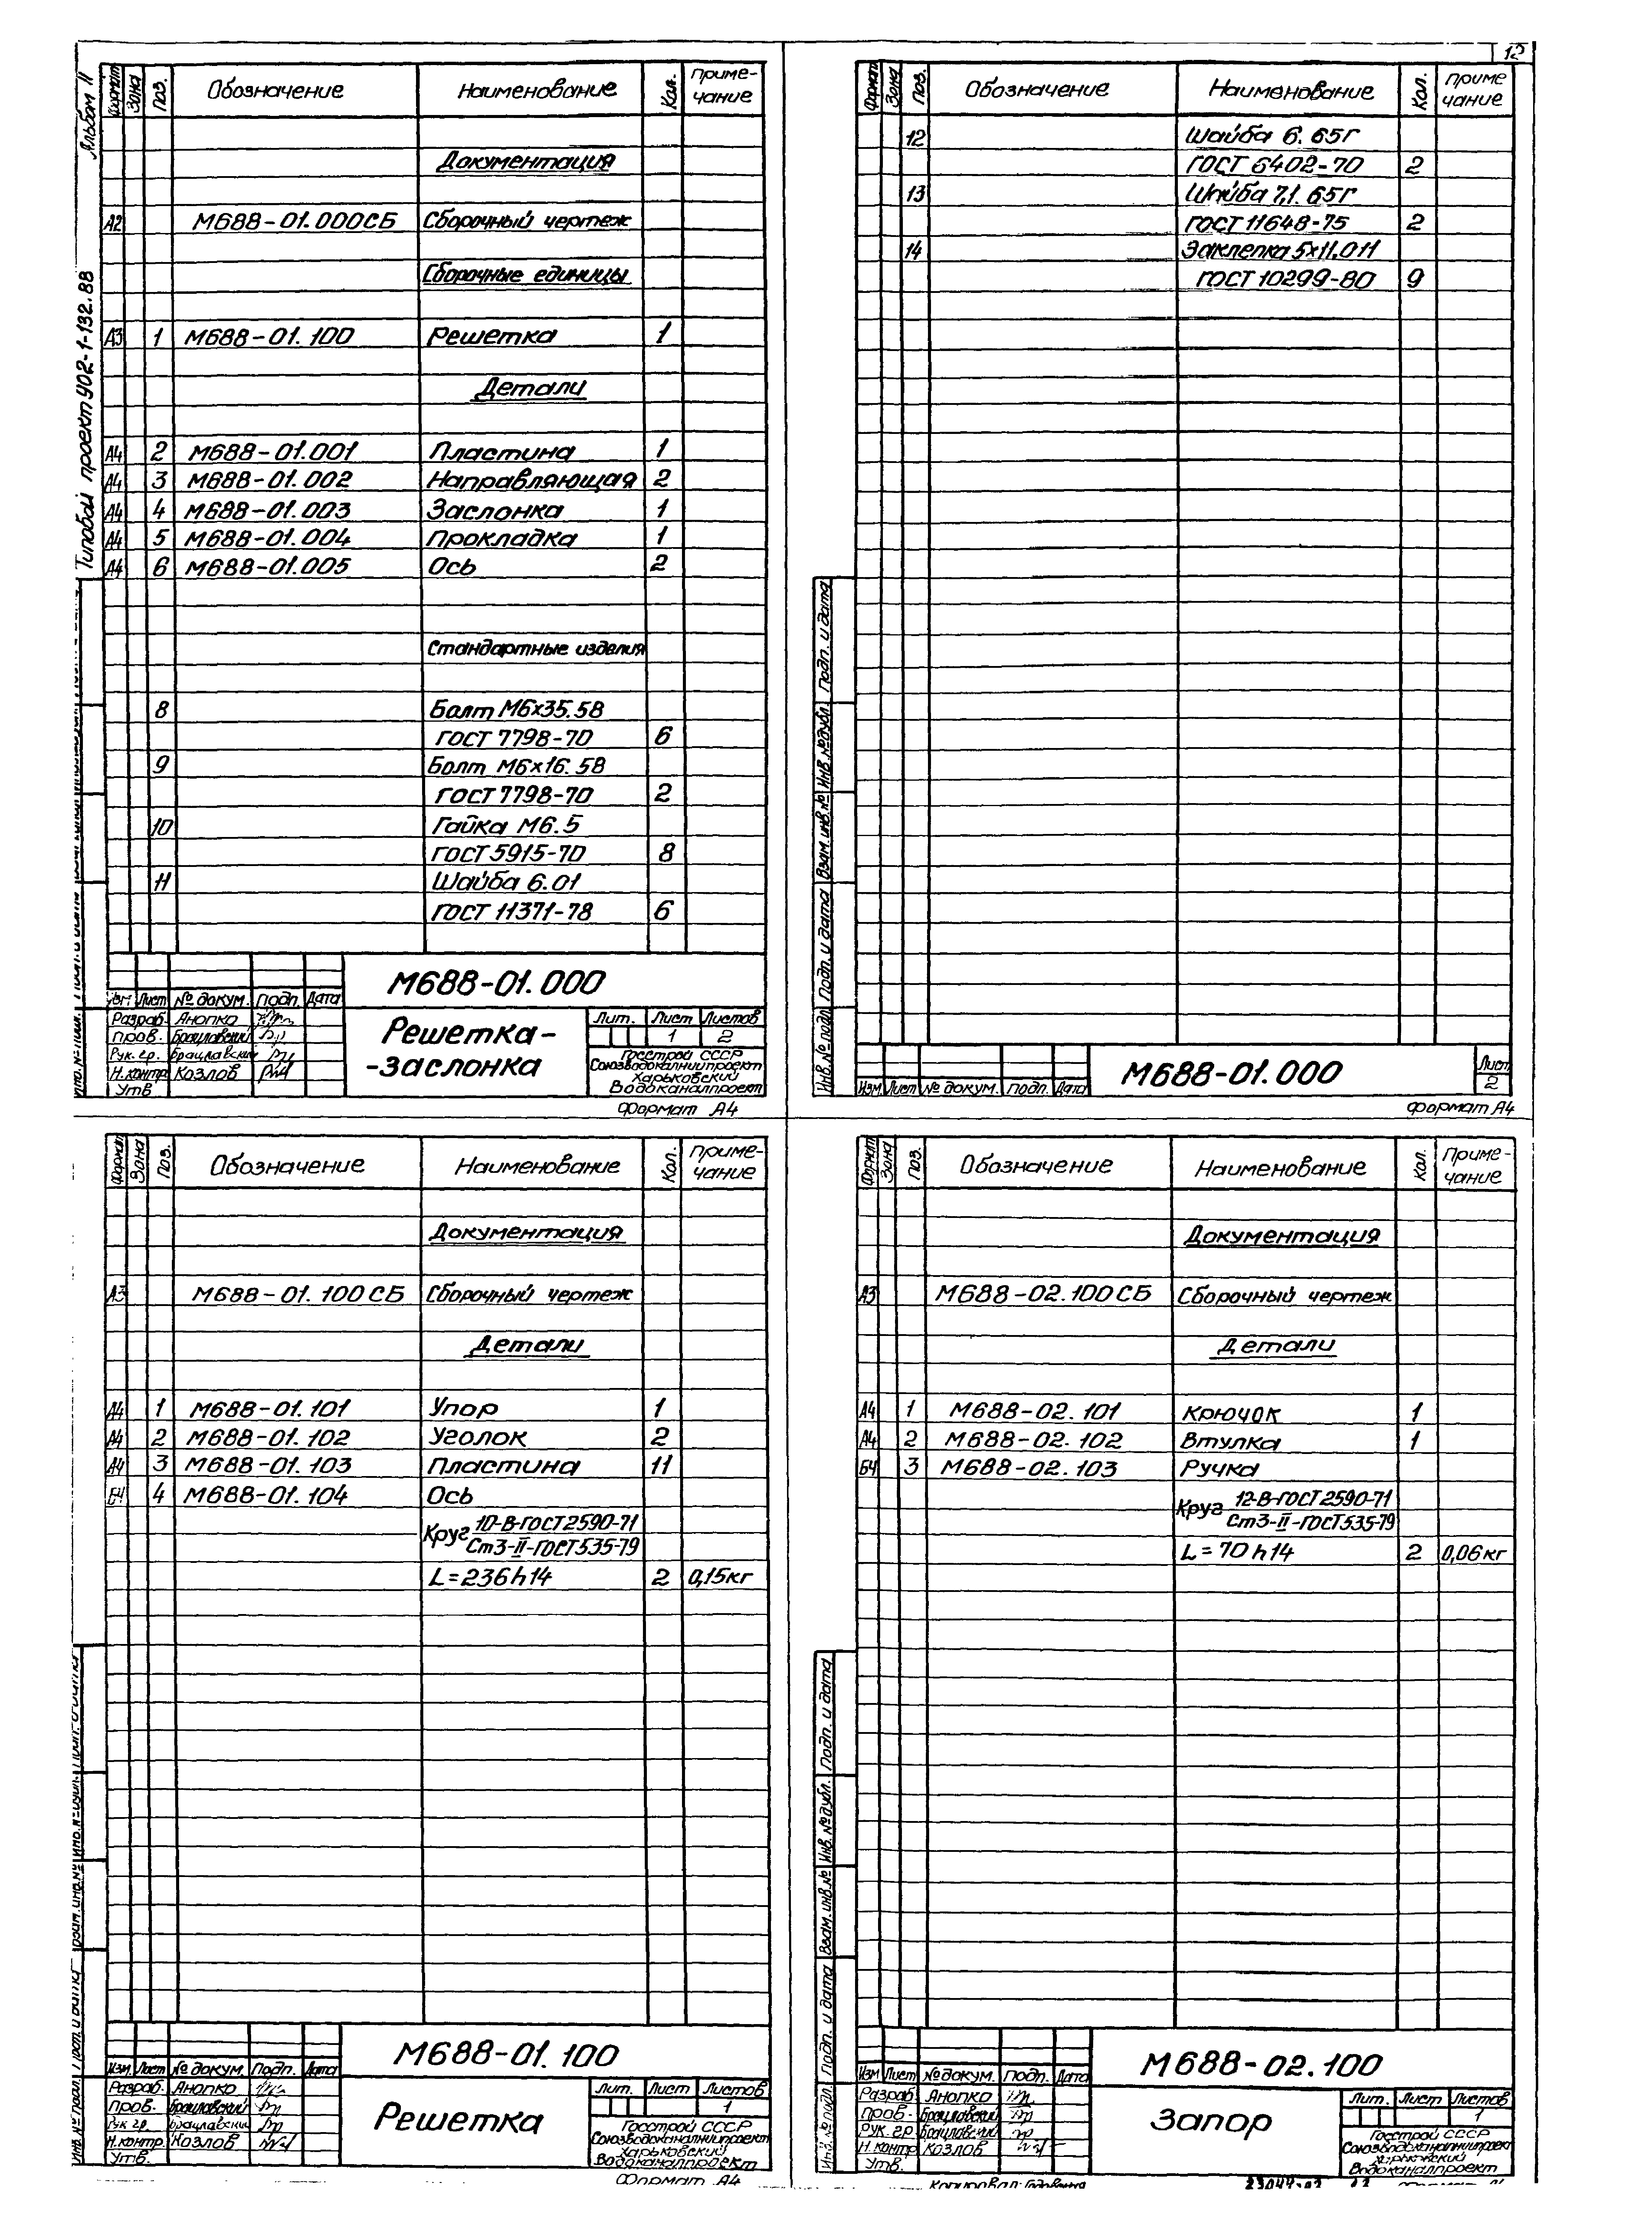 12
Альбом II
Типовой проект 402-1-132.88
Формат Зона Поз. Обозначение Наименование Кол. Приме-чание
Документация
А2 М688-01.000СБ Сборочный чертеж
Сборочные единицы
А3 1 М688-01.100 Решетка 1
Детали
А4 2 М688-01.001 Пластина 1
А4 3 М688-01.002 Направляющая 2
А4 4 М688-01.003 Заслонка 1
А4 5 М688-01.004 Прокладка 1
А4 6 М688-01.005 Ось 2
Стандартные изделия
8 Болт М6х35.58
ГОСТ 7798-70 6
9 Болт М6х16.58
ГОСТ 7798-70 2
10 Гайка М6.5
ГОСТ 5915-70 8
11 Шайба 6.01
ГОСТ 11371-78 6
М688-01.000
Изм Лист № докум. Подп. Дата
Разраб. Анопко
Пров. Брацлавский
Рук. гр. Брацлавский
Н.контр Козлов
Утв
Решетка-
-заслонка
Лит. Лист Листов
1 2
Госстрой СССР
Союзводоканалниипроект
Харьковский
Водоканалпроект
Формат А4
Формат Зона Поз. Обозначение Наименование Кол. Приме чание
12 Шайба 6.65Г
ГОСТ 6402-70 2
13 Шайба 7,1.65Г
ГОСТ 11648-75 2
14 Заклепка 5х11.011
ГОСТ 10299-80 9
Инв.№ подл. Подп. и дата Взам.инв.№ Инв.№дубл. Подп. и дата
Изм Лист № докум. Подп. Дата
М688-01.000
Лист
2
Формат А4
Формат Зона Поз. Обозначение Наименование Кол. Приме-чание
Документация
А3 М688-01.100СБ Сборочный чертеж
Детали
А4 1 М688-01.101 Упор 1
А4 2 М688-01.102 Уголок 2
А4 3 М688-01.103 Пластина 11
БЧ 4 М688-01.104 Ось
Круг 10-В-ГОСТ2590-71
Ст3-II-ГОСТ535-79
L=236h14 2 0,15кг
М688-01.100
Изм Лист № докум. Подп. Дата
Разраб. Анопко
Пров. Брацлавский
Рук гр. Брацлавский
Н.контр. Козлов
Утв.
Решетка
Лит. Лист Листов
1
Госстрой СССР
Союзводоканалниипроект
Харьковский
Водоканалпроект
Формат А4
Формат Зона Поз. Обозначение Наименование Кол. Приме-чание
Документация
А3 М688-02.100СБ Сборочный чертеж
Детали
А4 1 М688-02.101 Крючок 1
А4 2 М688-02.102 Втулка 1
БЧ 3 М688-02.103 Ручка
Круг 12-В-ГОСТ2590-71
Ст3-II-ГОСТ535-79
L=70h14 2 0,06кг
Инв.№ подл. Подп. и дата Взам.инв.№ Инв.№дубл. Подп. и дата
М688-02.100
Изм Лист № докум. Подп. Дата
Разраб. Анопко
Пров. Брацлавский
Рук. гр Брацлавский
Н.контр Козлов
Утв.
Запор
Лит. Лист Листов
1
Госстрой СССР
Союзводоканалниипроект
Харьковский
Водоканалпроект
Копировал: